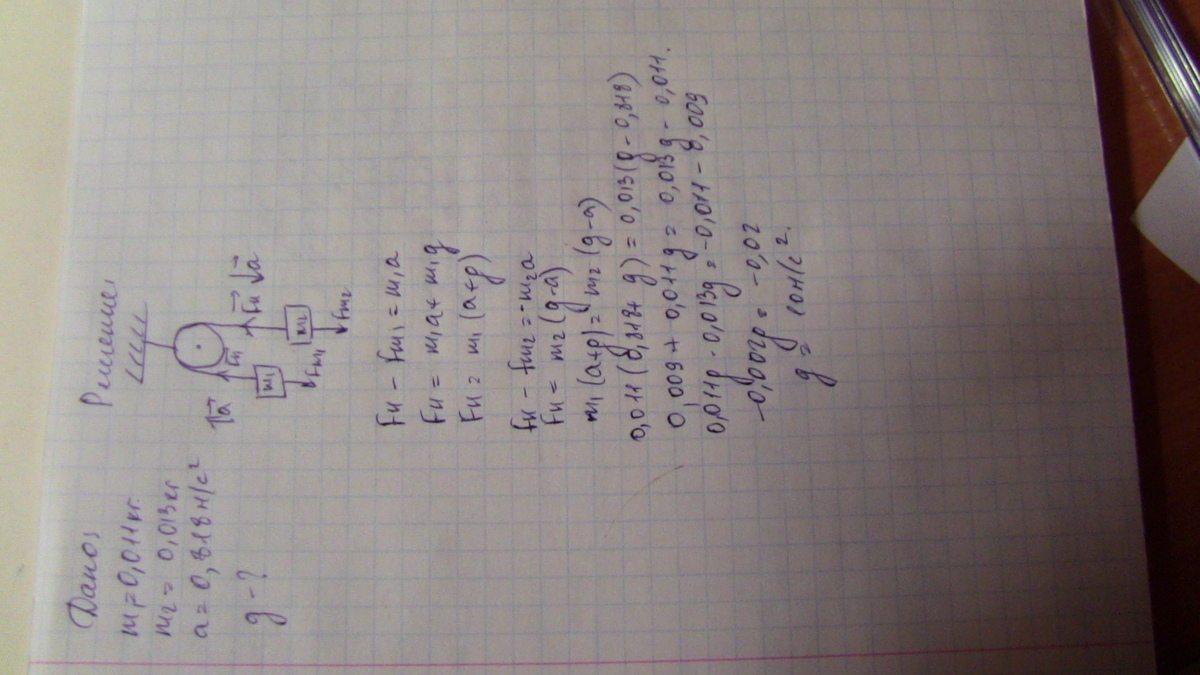 Дано:
m₁=0,011кг.
m₂ = 0,013кг
a = 0,818м/с²
g - ?
Решение:
↑a⃗ Fн Fн ↓a⃗
m₁ m₂
Fт₁ Fт₂
Fн - Fт₁ = m₁a
Fн = m₁a + m₁g
Fн = m₁(a+g)
Fн - Fт₂ = -m₂a
Fн = m₂(g-a)
m₁(a+g) = m₂(g-a)
0,011(0,818+ g) = 0,013(g - 0,818)
0,009 + 0,011g = 0,013g - 0,011.
0,011g - 0,013g = -0,011 - 0,009
-0,002g = -0,02
g = 10м/с².